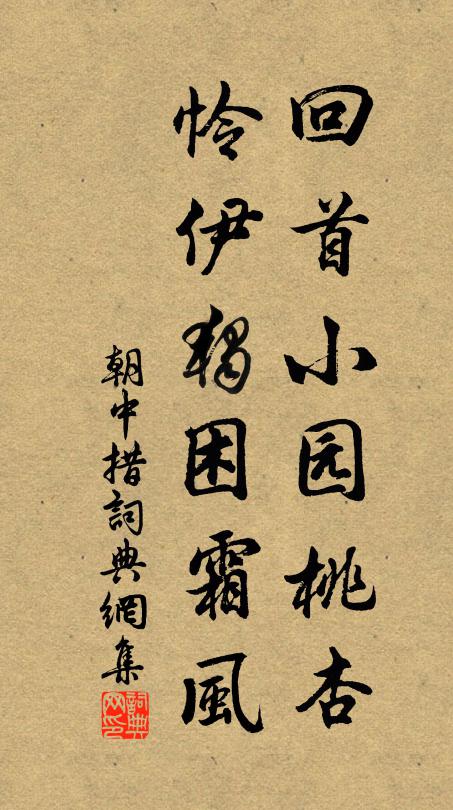 回首小园桃杏
怜伊獨困霜風
朝中措詞典網集
詞典网印